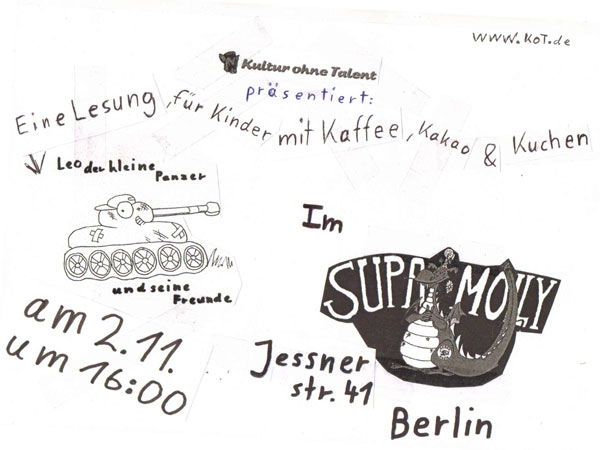 www.KoT.de
Kultur ohne Talent
präsentiert:
Eine Lesung, für Kinder mit Kaffee, Kakao & Kuchen
Leo der kleine
Panzer
und seine
Freunde
am 2.11.
um 16:00
Im
SUPAMOLLY
Jessner
str. 41
Berlin